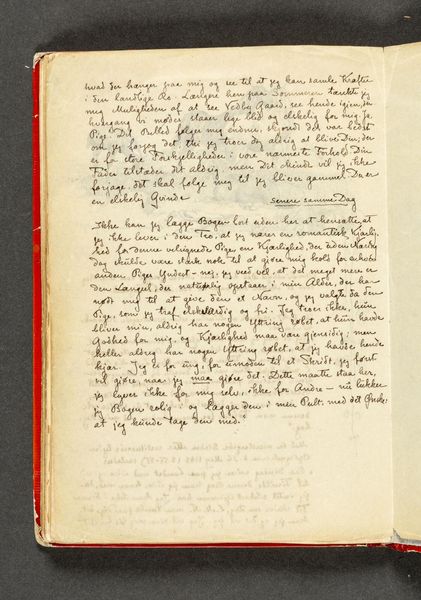 hvad der hænger paa mig og see til at jeg kan samle Kræfter
i den landlige Ro. Længere hen paa Sommeren tænkte jeg
mig Muligheden af at see Vedby Gaard, see hende igjen, den
hvergang vi mødes staaer lige blid og elskelig for mig. Ja,
Pige! Dit Billed følger mig endnu, skjøndt det var bedst
om jeg forjog det, thi jeg troer dog aldrig at blive Din, der
er for store Forskjelligheder i vore nærmeste Forhold. Din
Fader tilstæder det aldrig men Dit Minde vil jeg ikke
forjage, det skal følge mig til jeg bliver gammel. Du er
en elskelig Qvinde
senere samme Dag
Ikke kan jeg lægge Bogen bort uden her at hensætte, at
jeg ikke lever i den Tro, at jeg nærer en romantisk Kjærlig-
hed for denne velsignede Pige, en Kjærlighed, der uden Navn
dog skulde være stærk nok til at gjøre mig kold for enhver
anden Piges Yndest – nej, jeg veed vel, at det meget mere er
den Længsel, der naturlig opstaaer i min Alder, der har
nødt mig til at give den et Navn, og jeg valgte da den
Pige, som jeg traf elskværdig og fri. Jeg troer ikke, hun
bliver min, aldrig har nogen Yttring røbet, at hun havde
Godhed for mig, og Kjærlighed maa være gjensidig; men
heller aldrig har nogen Yttring røbet, at jeg havde hende
kjær. Jeg er for ung, for umoden til et Skridt, jeg først
vil gjøre, naar jeg maa gjøre det. Dette maatte staa her,
jeg lyver ikke for mig selv, ikke for Andre – nu lukker
jeg Bogen rolig og lægger den i min Pult, med det Ønske:
at jeg kunde tage den med."